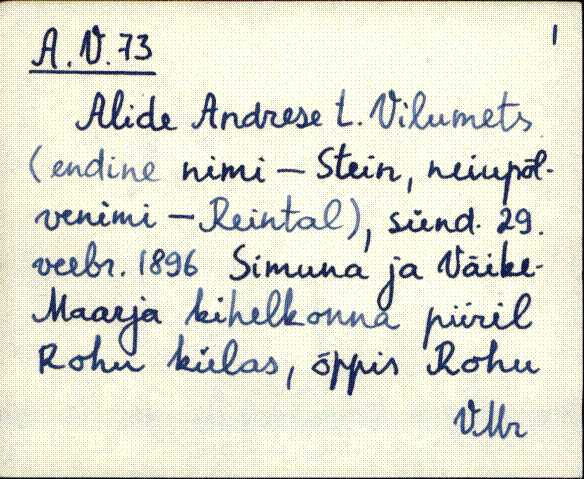 A.V.73
1
Alide Andrese t. Vilumets
(endine nimi – Stein, neiupõl-
venimi – Reintal), sünd. 29.
veebr. 1896 Simuna ja Väike-
Maarja kihelkonna piiril
Rohu külas, õppis Rohu
VMr